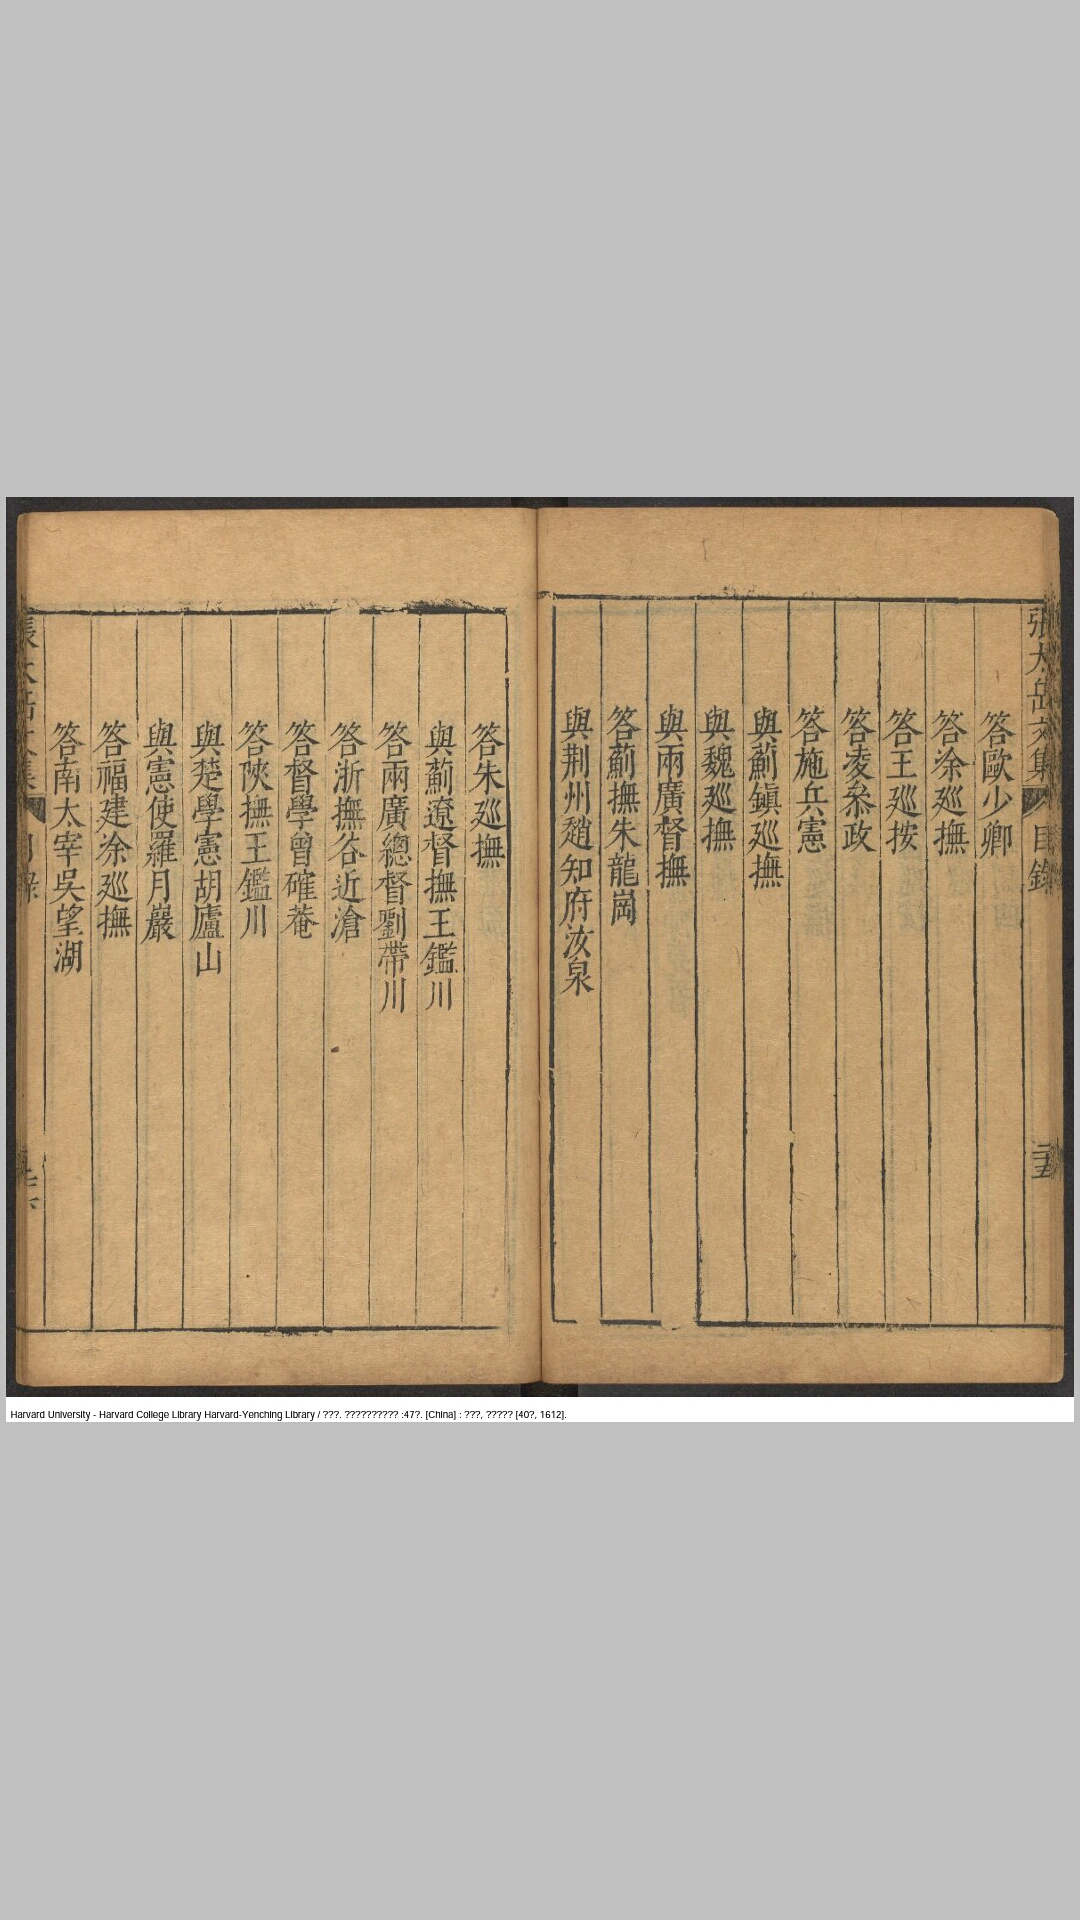 張太岳文集 目錄 三五
答歐少卿
答涂巡撫
答王巡按
答凌叅政
答施兵憲
與薊鎮巡撫
與魏巡撫
與兩廣督撫
答薊撫朱龍岡
與荆州趙知府汝泉
答朱巡撫
與薊遼督撫王鑑川
答兩廣總督劉帶川
答浙撫谷近滄
答督學曾確菴
答陝撫王鑑川
與楚學憲胡廬山
與憲使羅月巖
答福建涂巡撫
答南太宰吳望湖
Harvard University - Harvard College Library Harvard-Yenching Library / ???. ?????????? :47?. [China] : ???, ????? [40?, 1612].